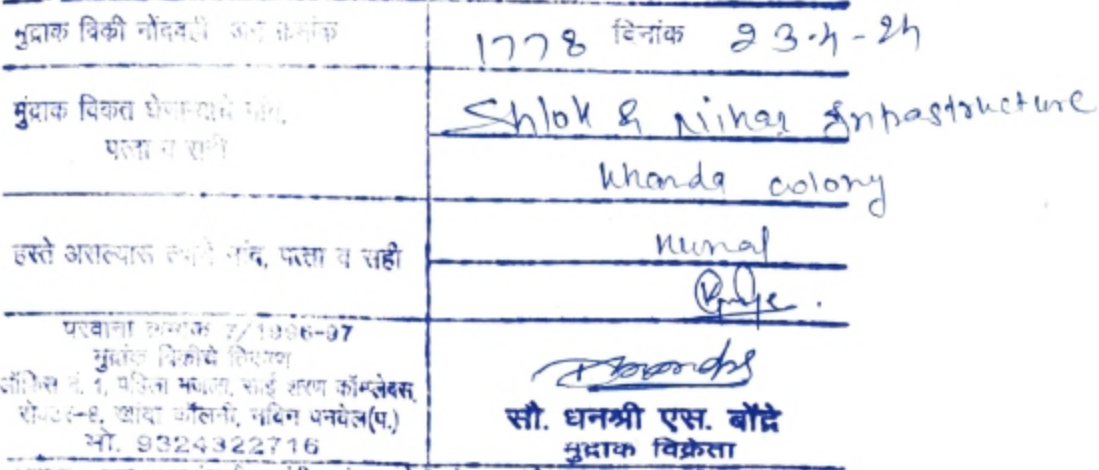 मुद्रांक विक्री नोंदवही अनु क्रमांक 1778 दिनांक 23-4-24
मुंद्राक विकत घेणाऱ्याचे नांव, Shlok & Nihar Infrastructure
पत्ता व सही Khanda colony
हस्ते असल्यास त्याचे नांव, पत्ता व सही
परवाना क्रमांक 7/1996-97
मुद्रांक विक्रीचे ठिकाण
ऑफिस नं. 1, पहिला मजला, साई शरण कॉम्प्लेक्स,
-8, खांदा कॉलनी, नविन पनवेल(प.)
मो. 9324322716
सौ. धनश्री एस. बोंद्रे
मुद्रांक विक्रेता